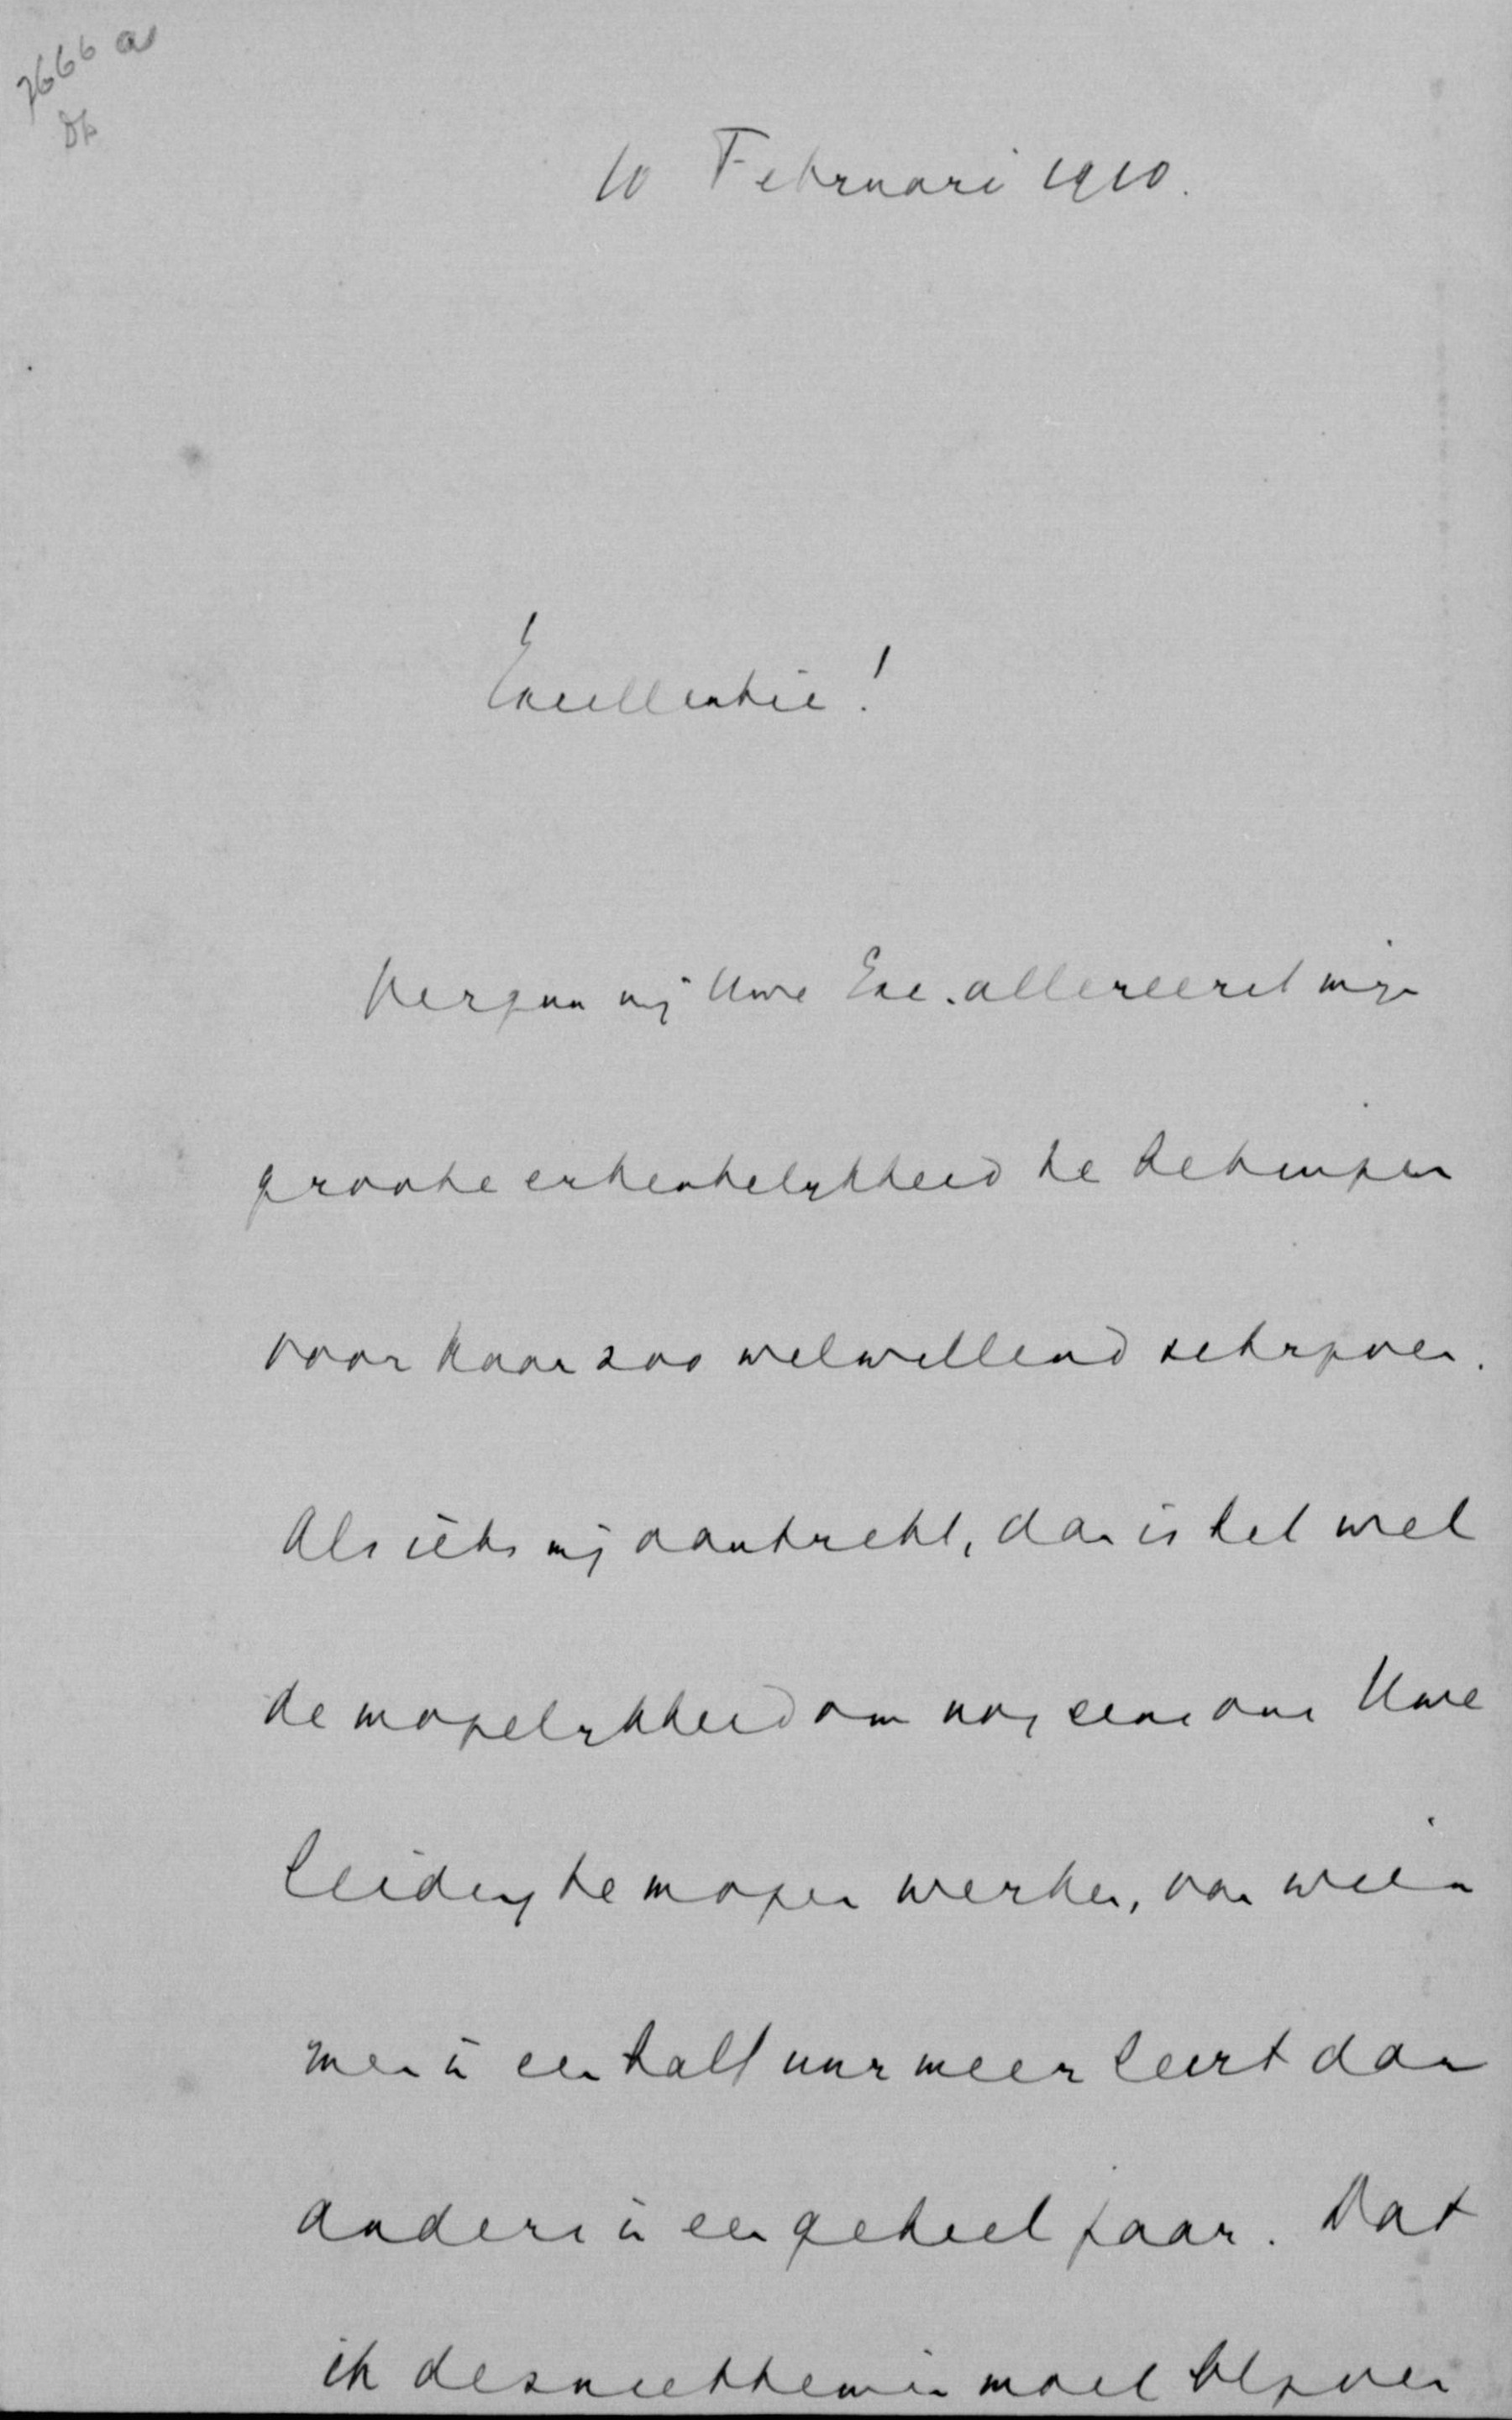 7666 a
Dk
10 Februari 1910.
Excellentie!
Vergun mij Uwe Exc. allereerst mijn
groote erkentelijkheid te betuigen
voor haar zoo welwillend schrijven.
Als iets mij aantrekt, dan is het wel
de mogelijkheid om nog eens onr Uwe
leiding te mogen werken, van wien
men in een half uur meer leert dan
anders in een geheel jaar. Dat
ik desniettemin moet blijven